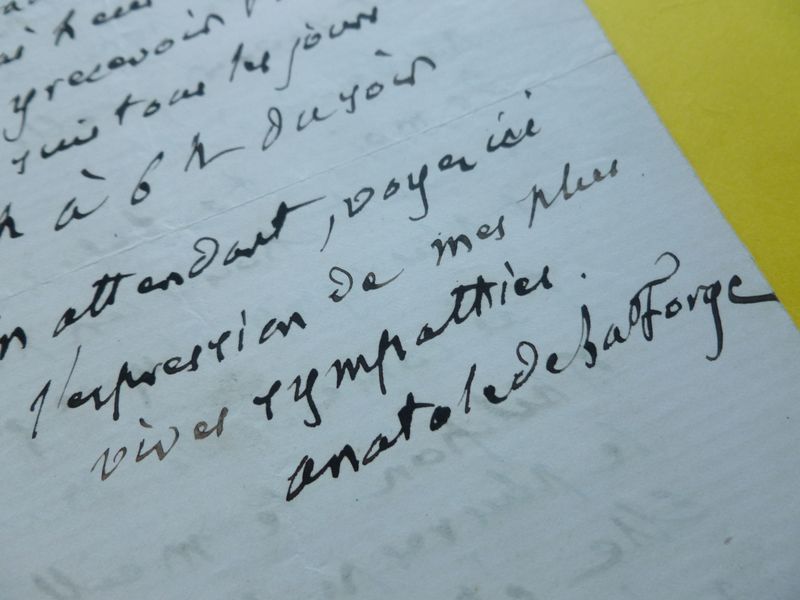 y recevoir
suis tous les jours
à 6 h du soir
en attendant, voyez ici
l'expression de mes plus
vives sympathies.
anatole de La Forge